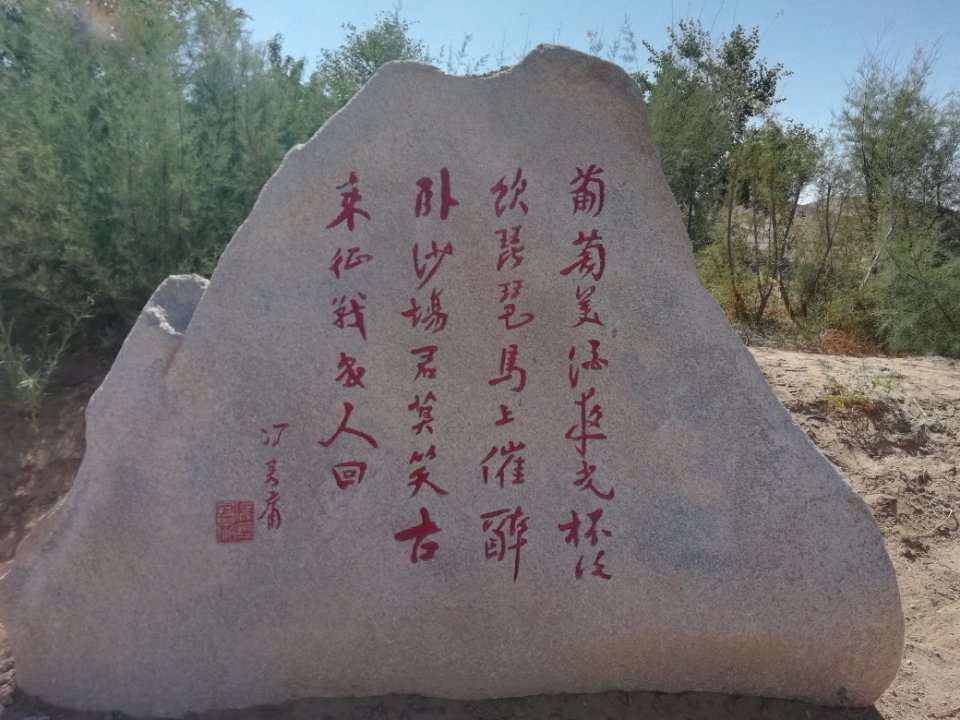 葡萄美酒夜光杯欲
飲琵琶馬上催醉
卧沙場君莫笑古
来征戰幾人回
冯其庸